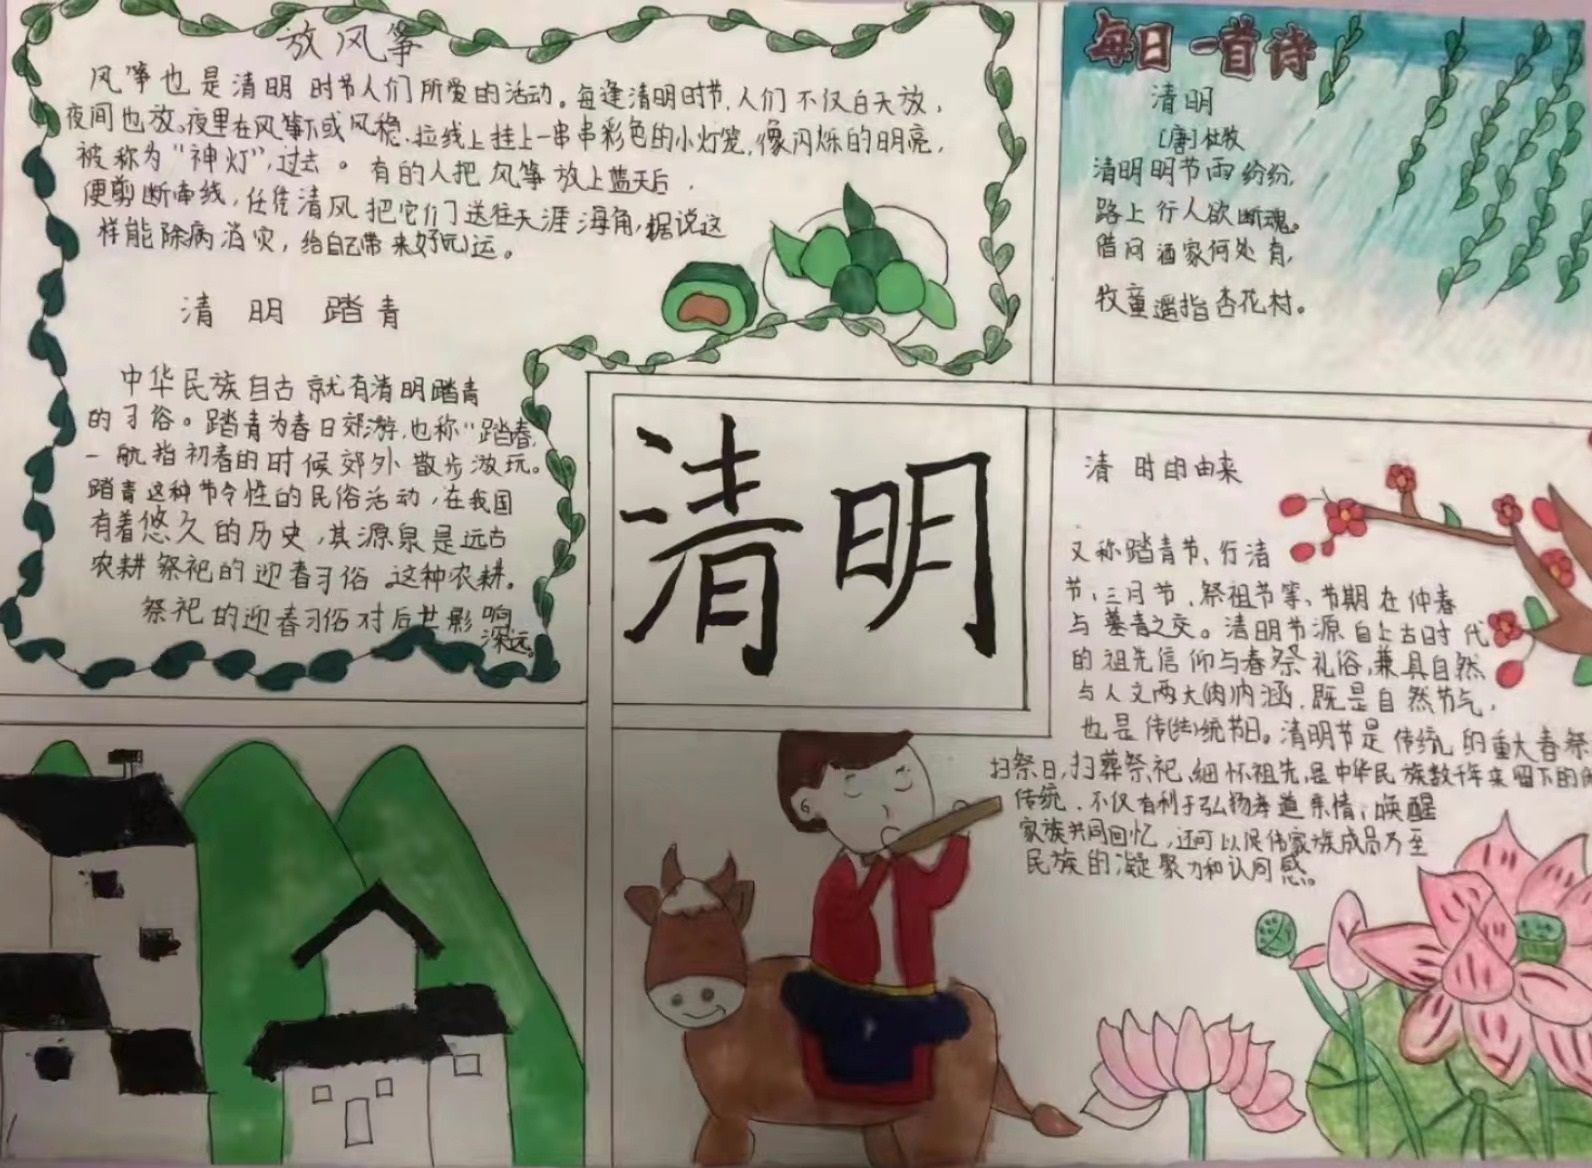 放风筝
风筝也是清明时节人们所爱的活动。每逢清明时节,人们不仅白天放,
夜间也放。夜里在风筝下或风稳、拉线上挂上一串串彩色的小灯笼,像闪烁的明亮,
被称为“神灯”,过去。有的人把风筝放上蓝天后,
便剪断牵线,任凭清风把它们送往天涯海角,据说这
样能除病消灾,给自己带来好运。
清明踏青
中华民族自古就有清明踏青
的习俗。踏青为春日郊游,也称“踏春,
一般指初春的时候郊外散步游玩。
踏青这种节令性的民俗活动,在我国
有着悠久的历史,其源泉是远古
农耕祭祀的迎春习俗。这种农耕。
祭祀的迎春习俗对后世影响
深远。
每日一首诗
清明
[唐]杜牧
清明明节雨纷纷,
路上行人欲断魂。
借问酒家何处有,
牧童遥指杏花村。
清明
清时的由来
又称踏青节、行清
节、三月节、祭祖节等、节期在仲春
与墓青之交。清明节源自上古时代
的祖先信仰与春祭礼俗,兼具自然
与人文两大内涵,既是自然节气,
也是传统节日。清明节是传统的重大春祭
扫祭日,扫葬祭祀、缅怀祖先,是中华民族数千年来留下的
传统,不仅有利于弘扬孝道亲情,唤醒
家族共同回忆,还可以促家族成员乃至
民族的凝聚力和认同感。